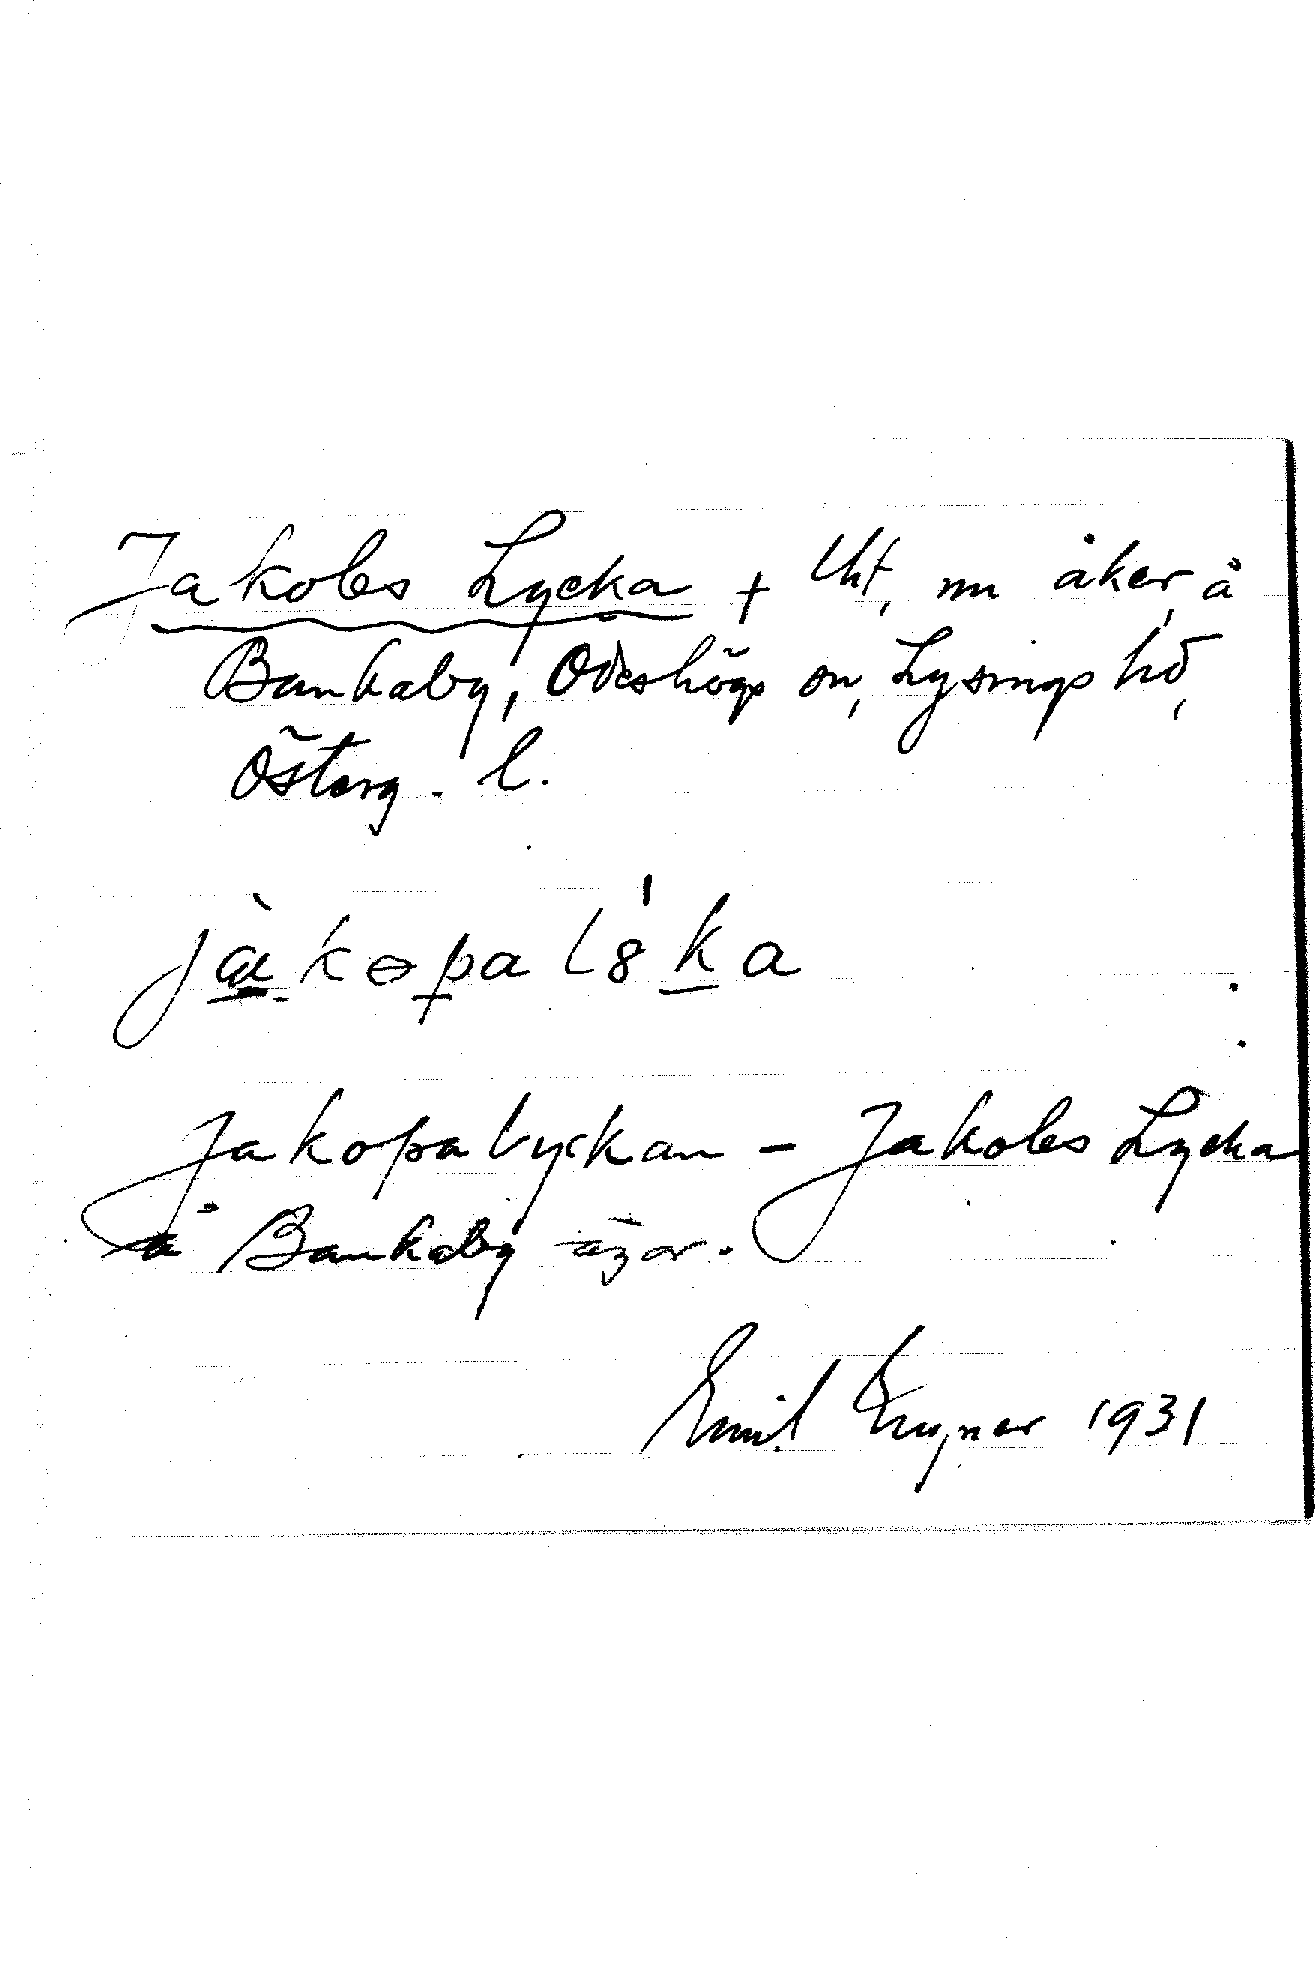 Jakobs Lycka + lht, nu åker, å
Bankaby, Ödeshögs sn, Lysings hd,
Österg. l.
jàkopalyka
Jakopalyckan – Jakobs Lycka
å Bankaby ägor.
Emil 1931